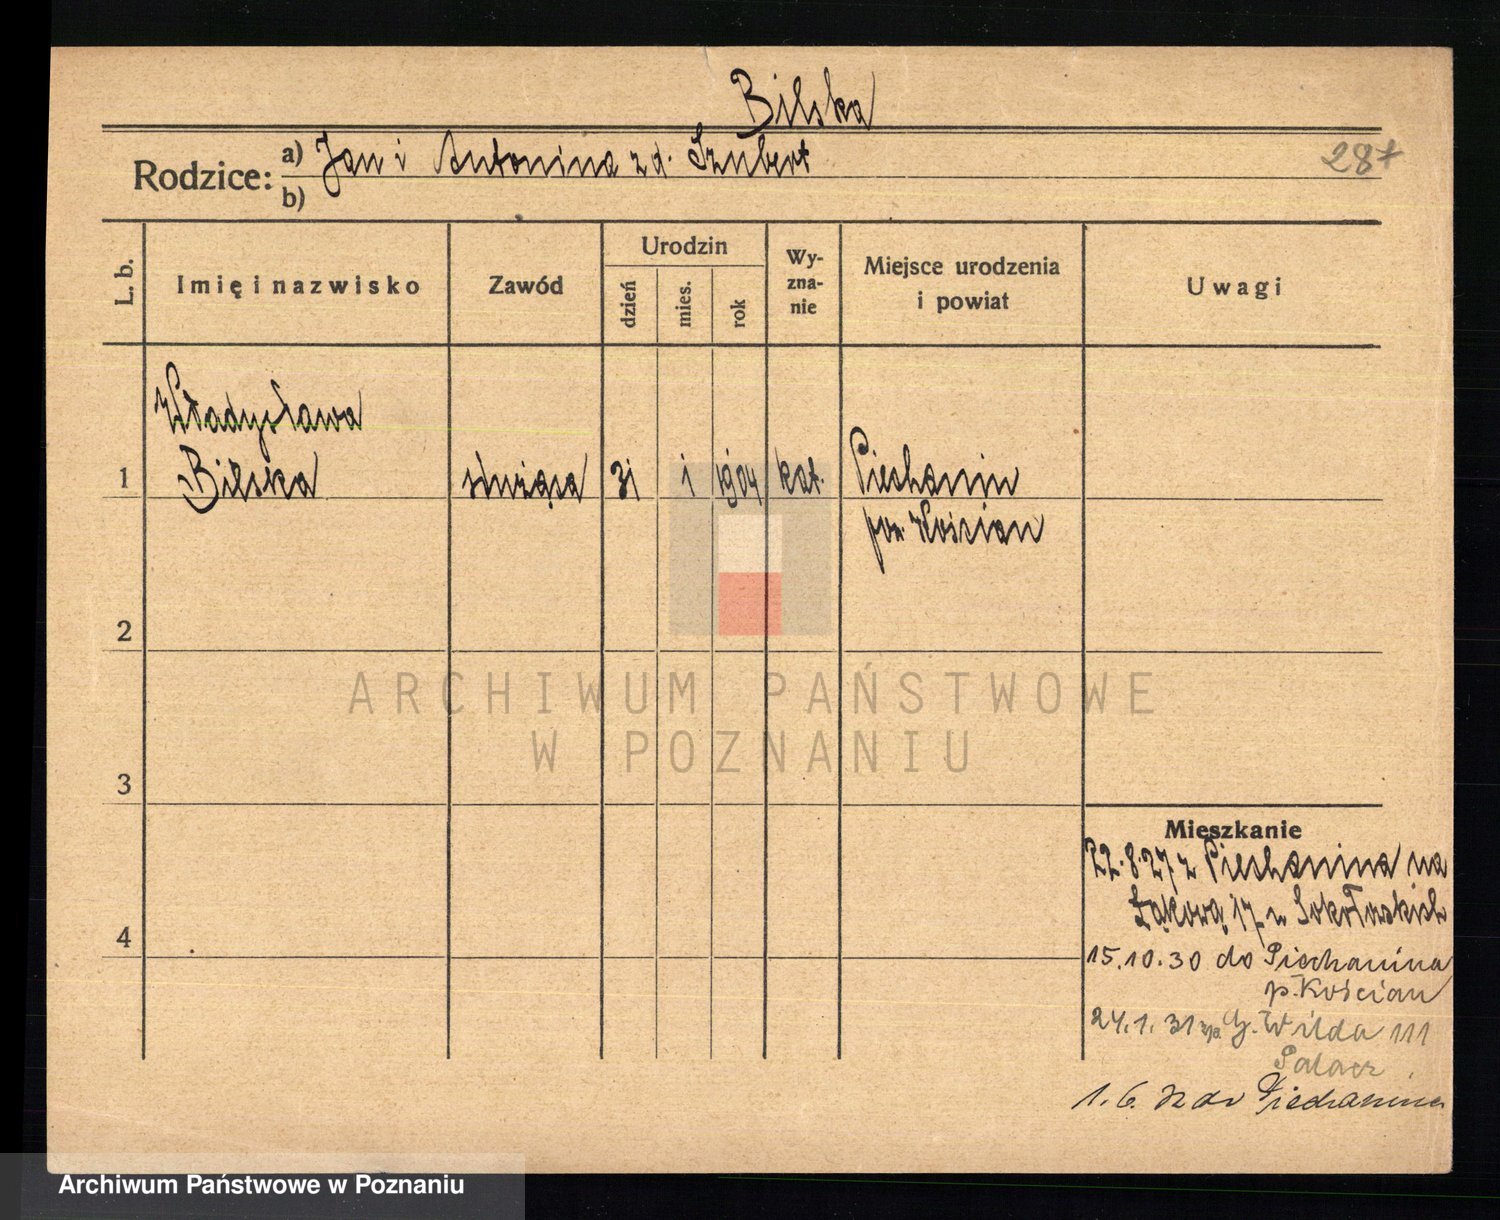 Bilska
Rodzice: a) Jan i Antonina z d. Sznbert
b)
287
L. b.
Imię i nazwisko
Zawód
Urodzin
dzień
mies.
rok
Wy-
zna-
nie
Miejsce urodzenia
i powiat
Uwagi
Władysława
1 Bilska służąca 31 1 1904 kat. Piechanin
pow. Kościan
2
ARCHIWUM PAŃSTWOWE
W POZNANIU
3
Mieszkanie
22.8.27 z Piechanina na
Łąkową 17 u Sokołowskich
4
15.10.30 do Piechanina
p. Kościan
24.1.31 G. Wilda 111
Palacz
1.6. 32 do Piechanina
Archiwum Państwowe w Poznaniu